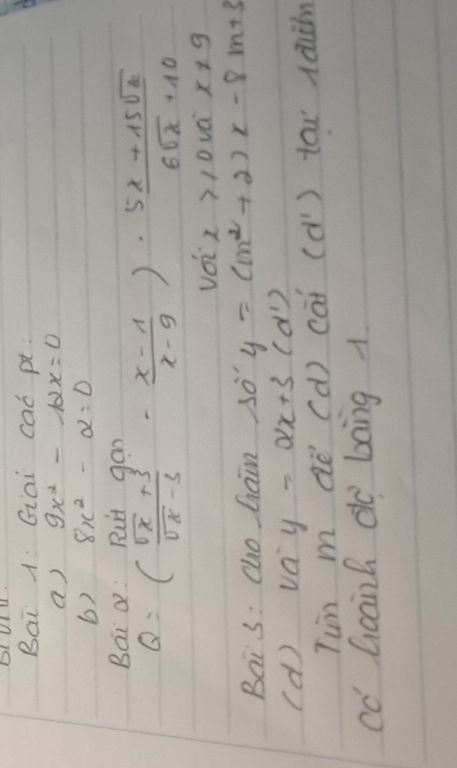 Bài 1: Giải các pt:
a) 9x² - 12x = 0
b) 8x² - 2 = 0
Bài 2: Rút gọn
Q = ( (√x + 3)/(√x - 3) - (x - 1)/(x - 9) ) . (5x + 15√x)/(6√x + 10)
với x > 0 và x ≠ 9
Bài 3: Cho hàm số y = (m² + 2)x - 8m + 3
(d) và y = 2x + 3 (d')
Tìm m để (d) cắt (d') tại 1 điểm
có hoành độ bằng 1.